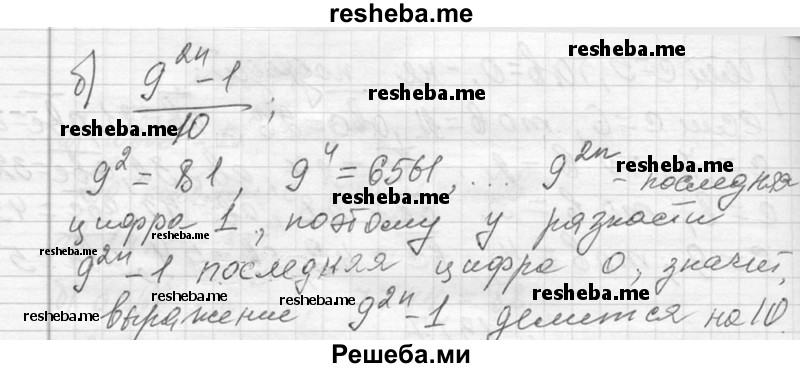 resheba.me
resheba.me
б) (9^{2n} - 1)/10 ;
resheba.me
resheba.me
9² = 81, 9⁴ = 6561, ... 9^{2n} - последняя
resheba.me
resheba.me
цифра 1, поэтому у разности
resheba.me
resheba.me
9^{2n} - 1 последняя цифра 0, значит,
resheba.me
resheba.me
resheba.me
resheba.me
выражение 9^{2n} - 1 делится на 10
Решеба.ми